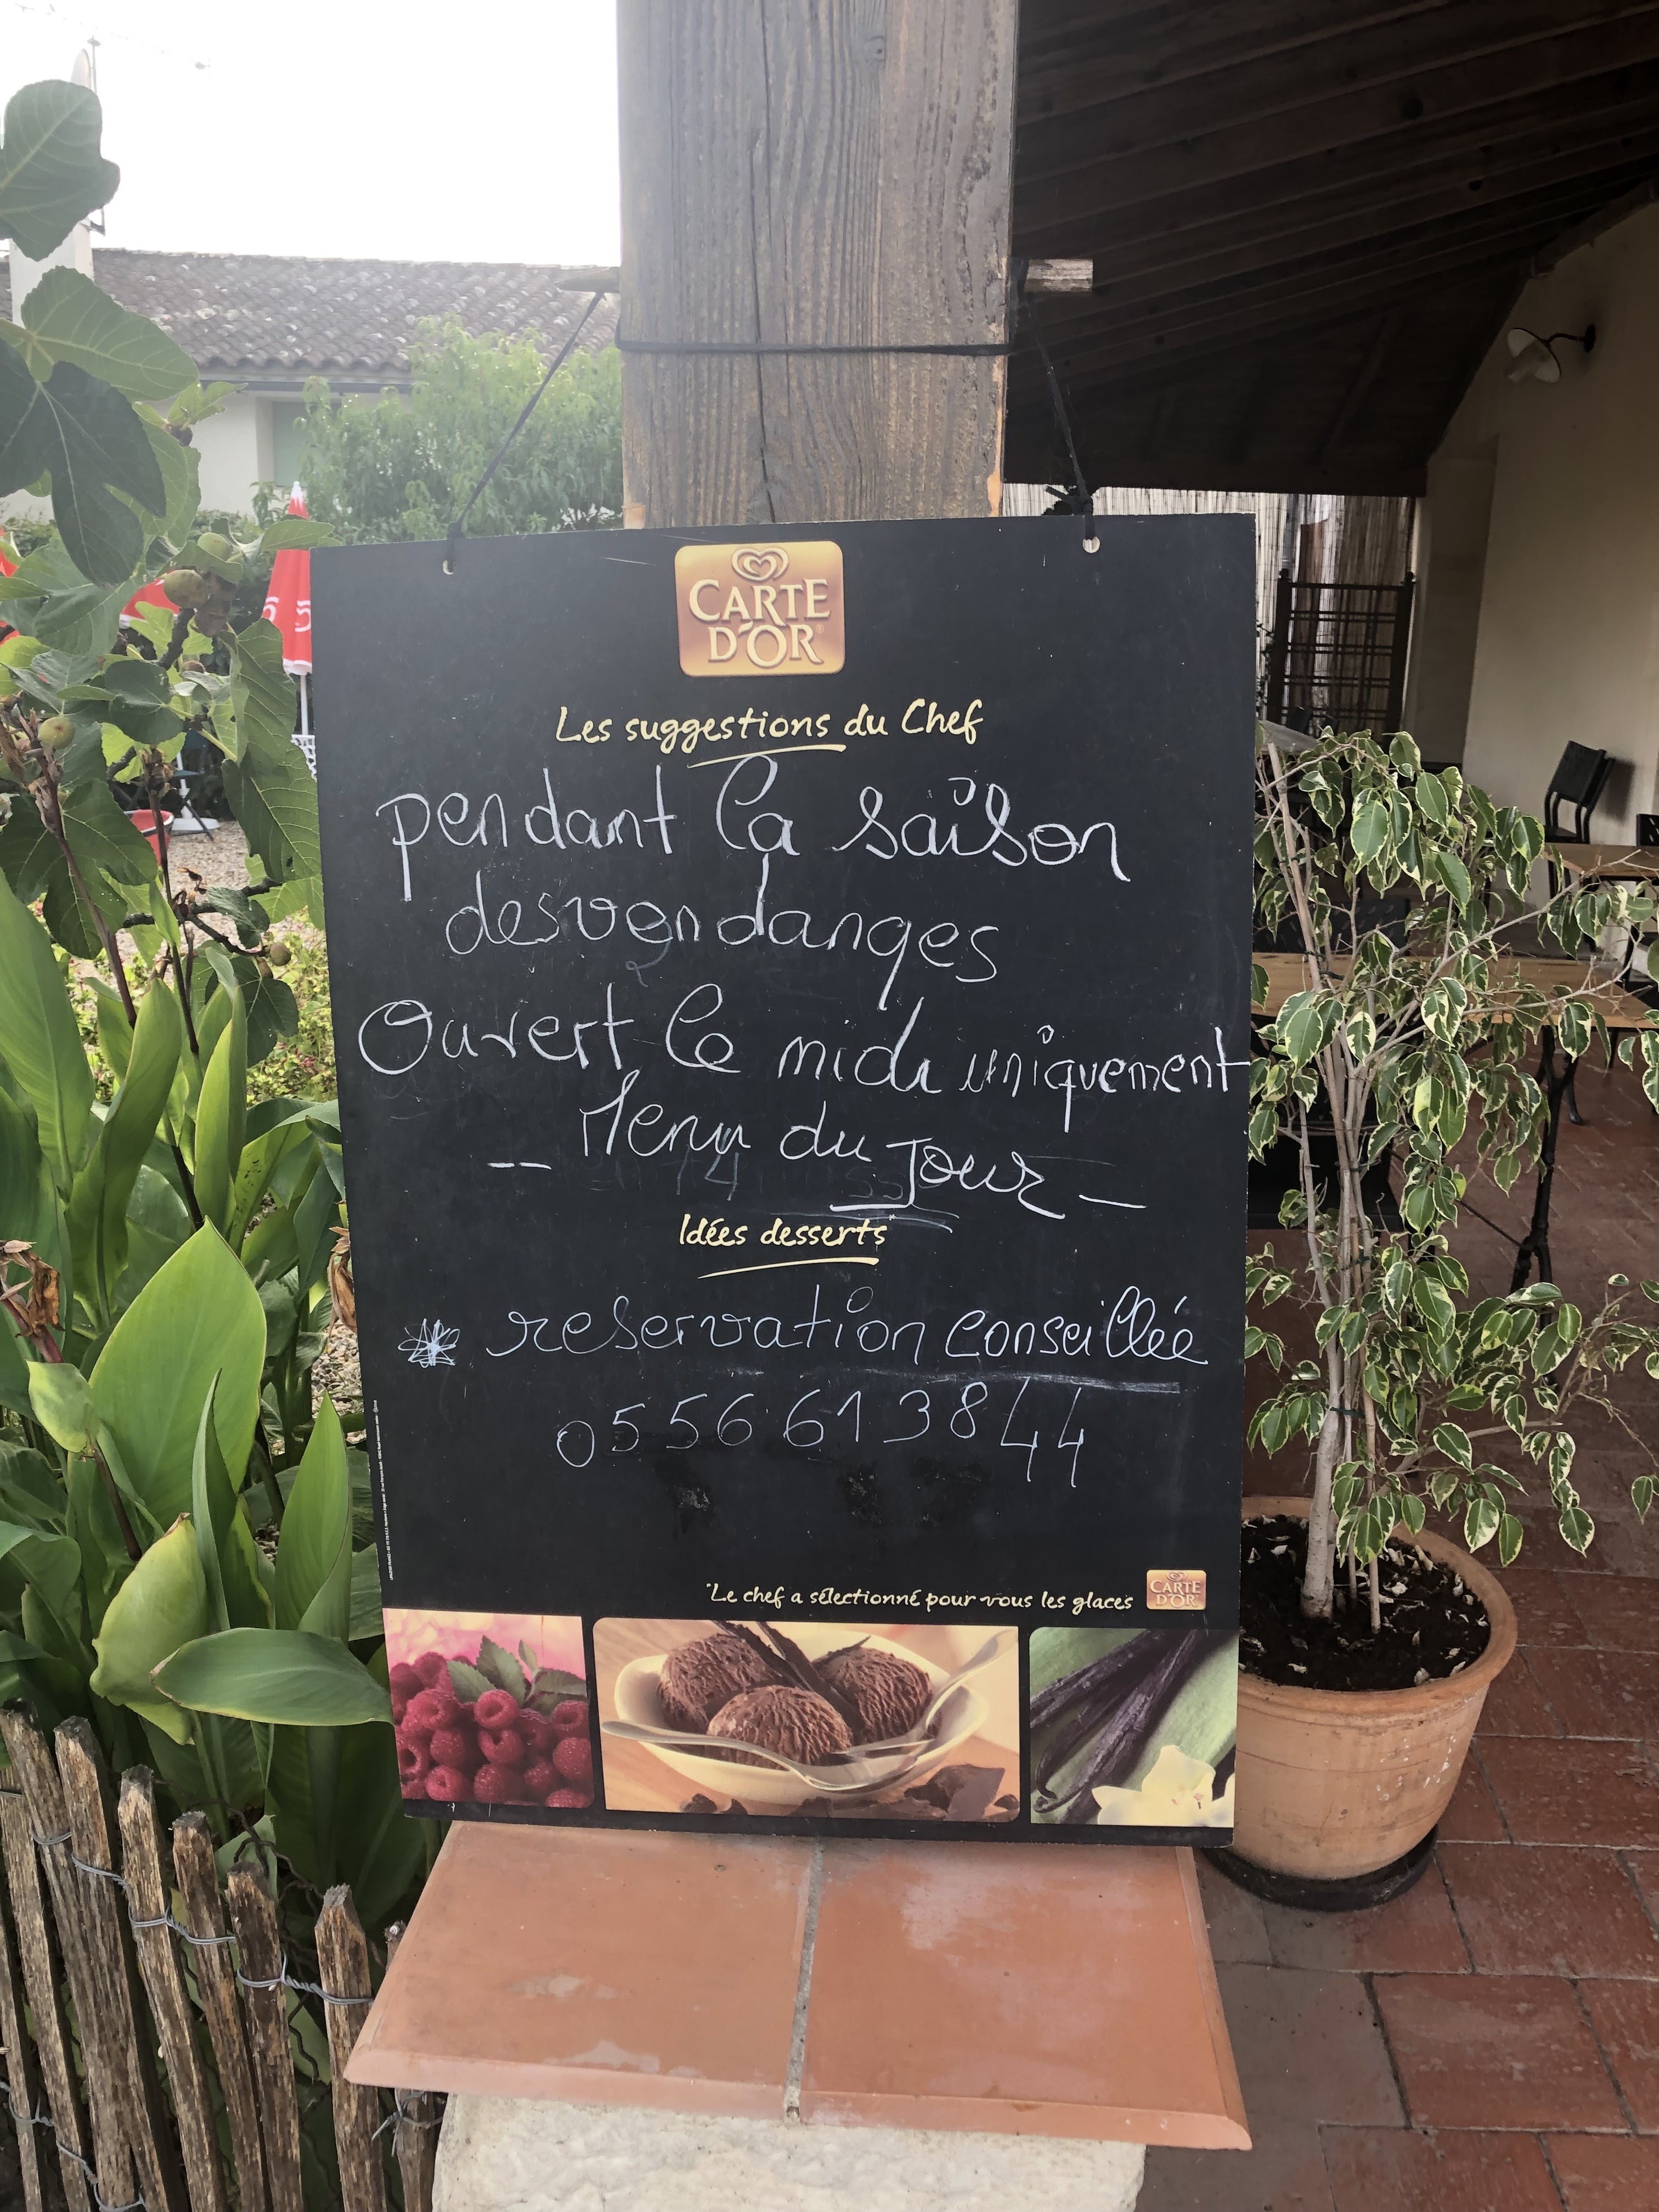 CARTE
D'OR
Les suggestions du Chef
pendant la saison
des vendanges
Ouvert le midi uniquement
-- Menu du Jour -
Idées desserts*
* reservation conseillée
05 56 61 38 44
*Le chef a sélectionné pour vous les glaces CARTE D'OR